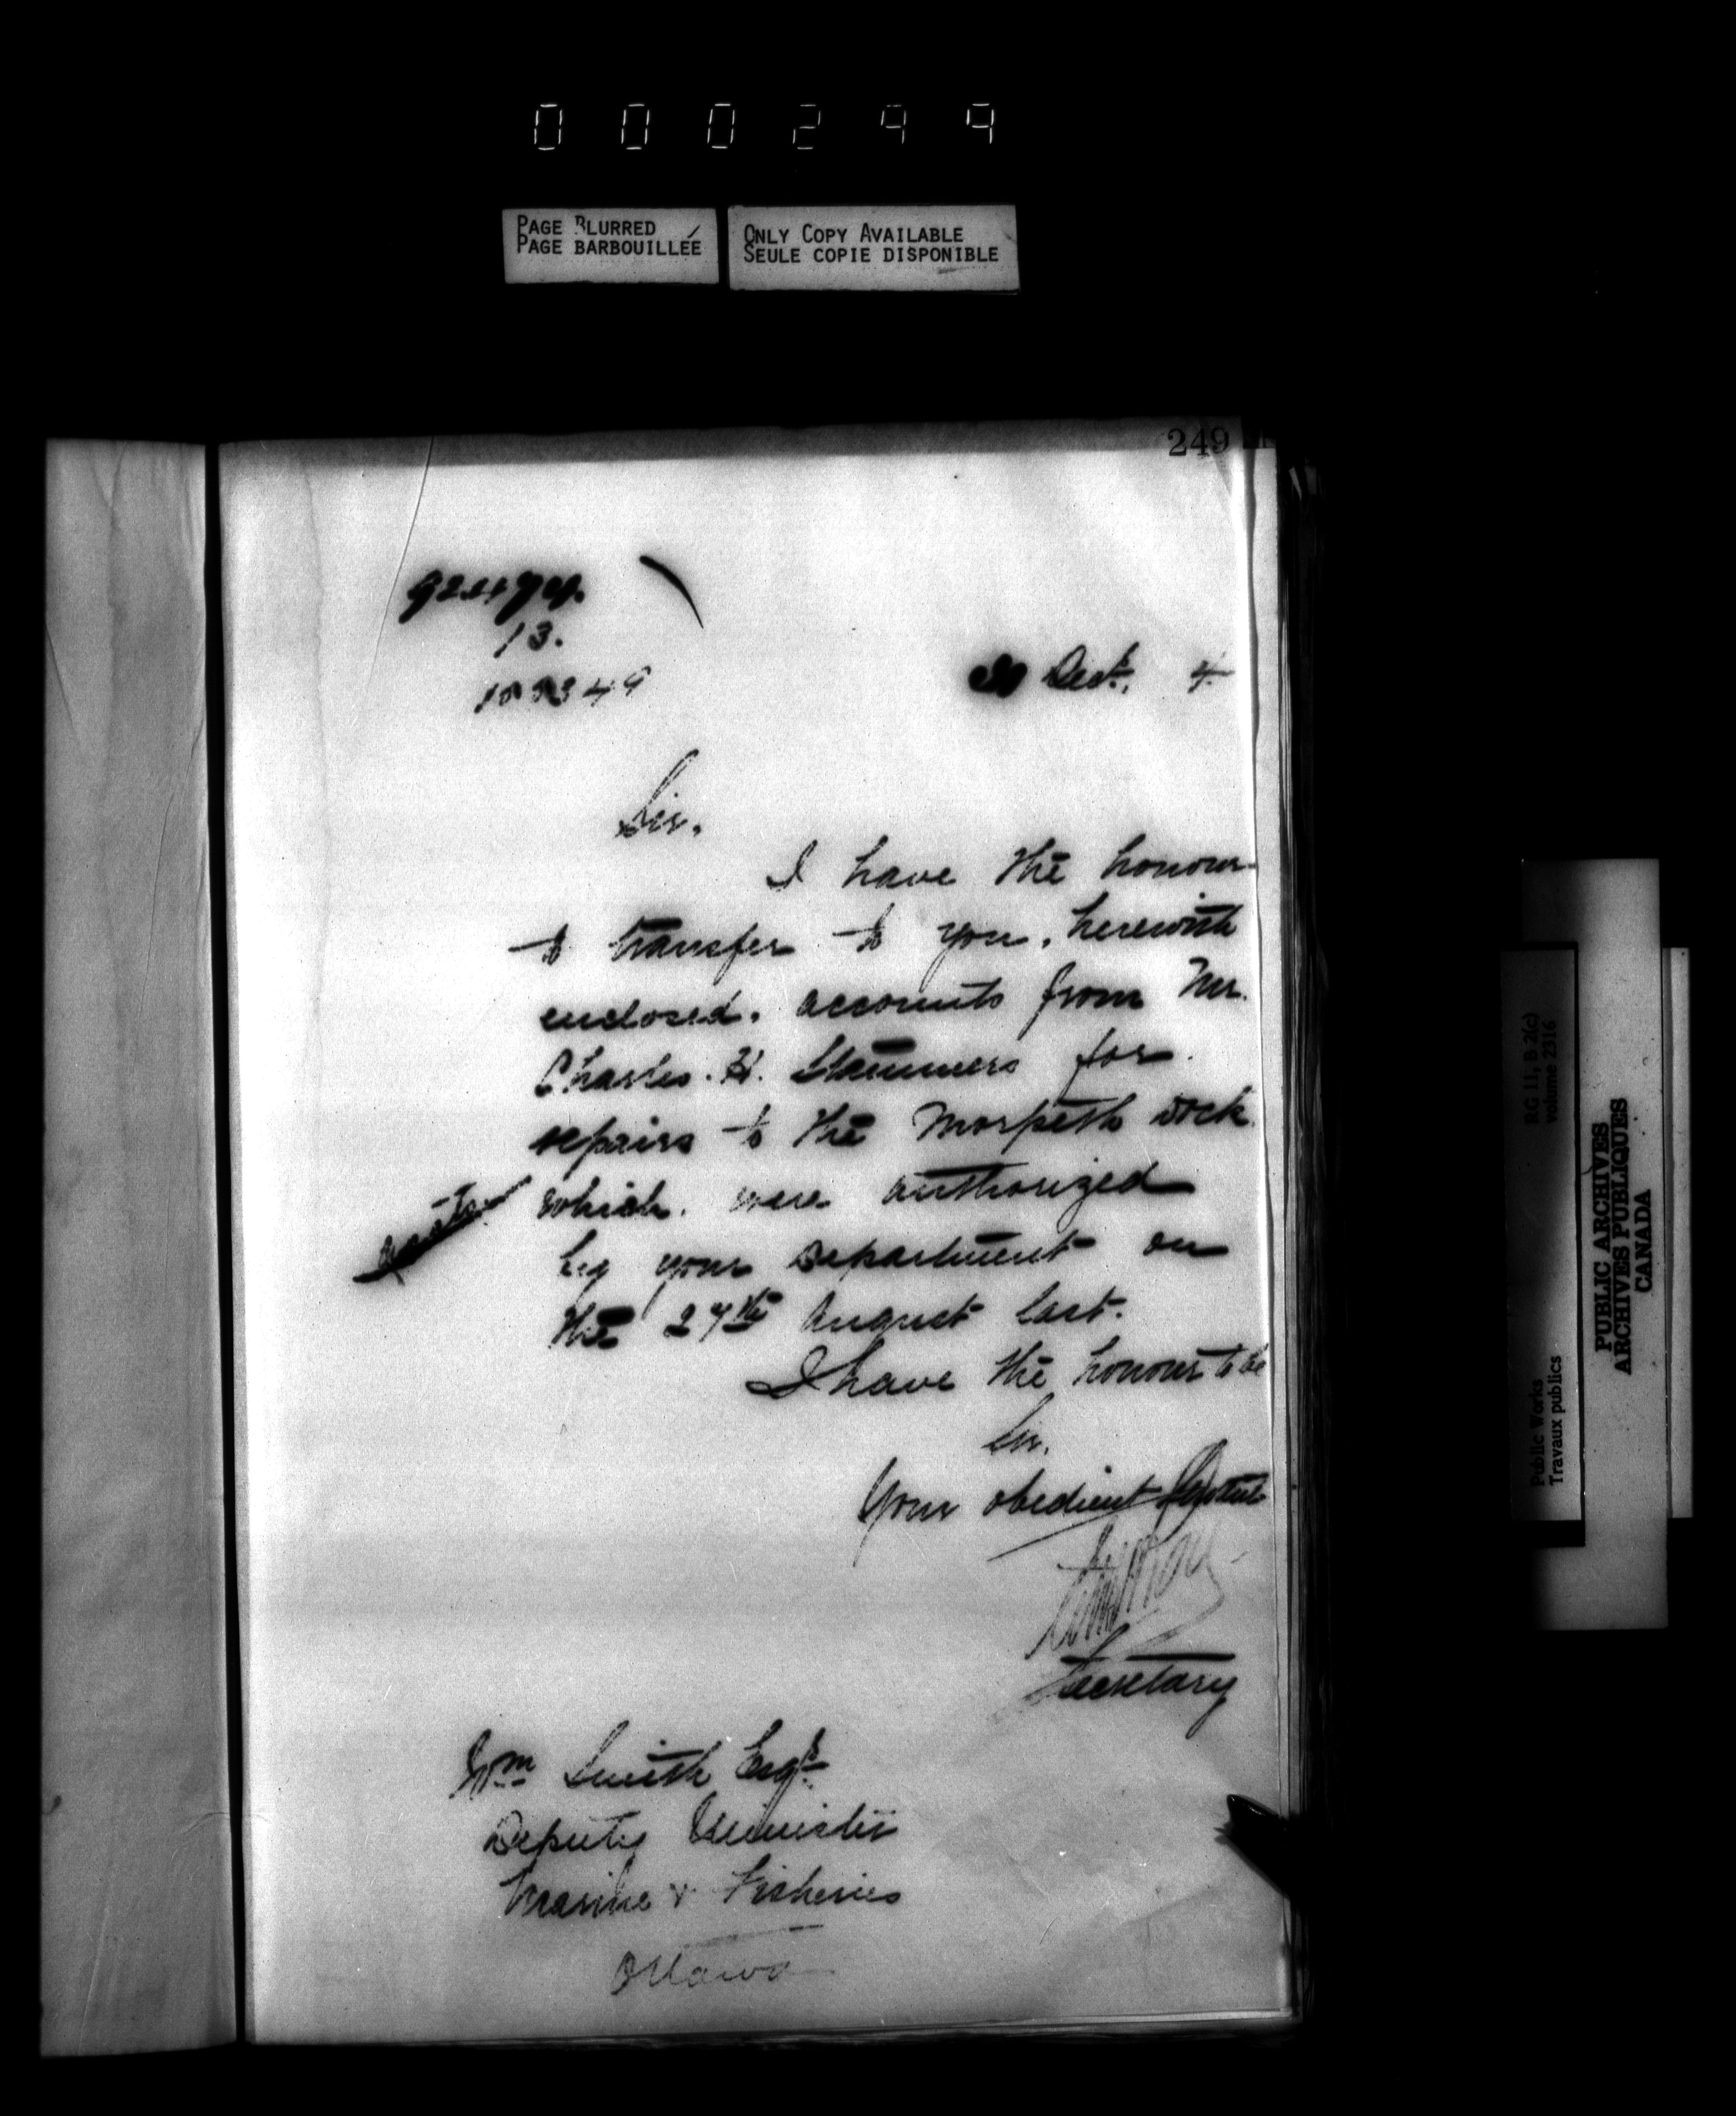 000299
PAGE BLURRED
PAGE BARBOUILLÉE
ONLY COPY AVAILABLE
SEULE COPIE DISPONIBLE
249
13.
Dect. 4
Sir.
I have the honour
to transfer to you, herewith
enclosed, accounts from Mr.
Charles. H. Stammers for
repairs to the Morpeth dock
which were authorized
by your Department on
the 27th August last.
I have the honour to be
Sir.
Your obedient
Secretary
Wm Smith Esqr.
Deputy Minister
Marine & Fisheries
Ottawa
RG 11, B 2(c)
volume 2316
Public Works
Travaux publics
PUBLIC ARCHIVES
ARCHIVES PUBLIQUES
CANADA